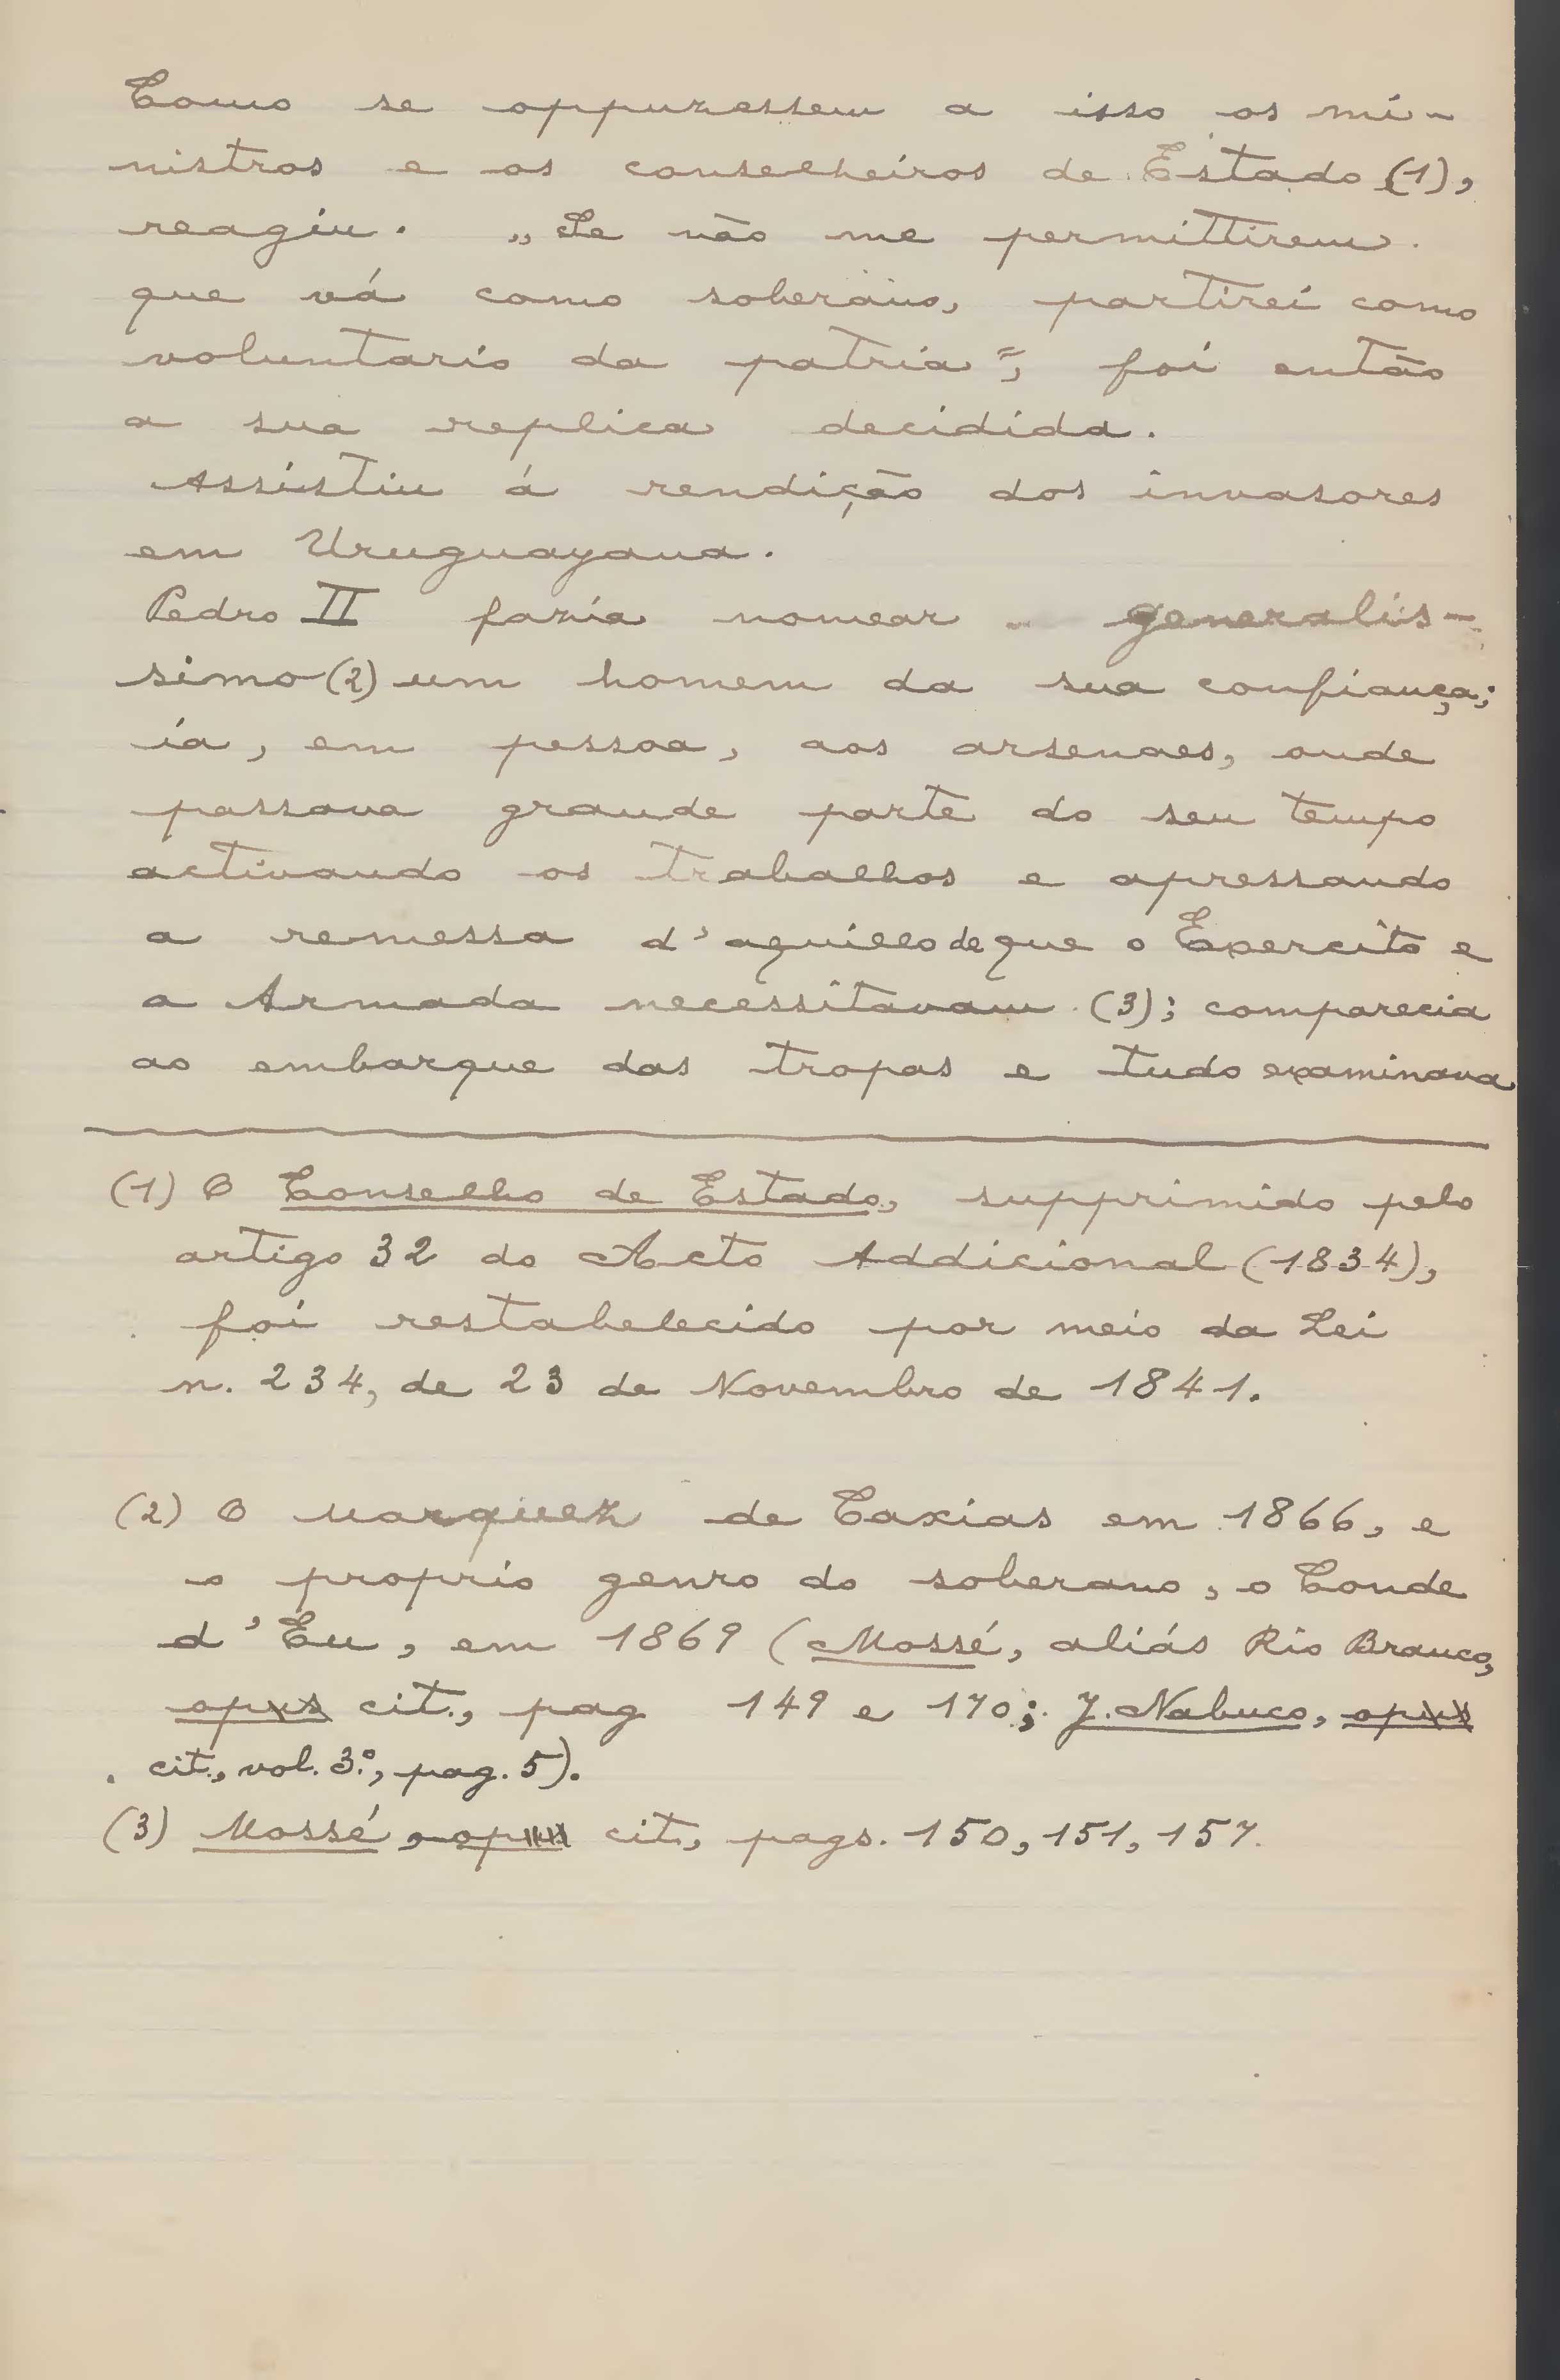 Como se oppuzessem a isso os mi-
nistros e os conselheiros de Estado (1),
reagiu. „Se não me permittirem
que vá como soberano, partirei como
voluntario da patria", foi então
a sua replica decidida.
Assistiu á rendição dos invasores
em Uruguayana.
Pedro II fazia nomear generalis-
simo (2) um homem da sua confiança;
ia, em pessoa, aos arsenaes, onde
passava grande parte do seu tempo
activando os trabalhos e apressando
a remessa d'aquillo de que o Exercito e
a Armada necessitavam (3); comparecia
ao embarque das tropas e tudo examinava
(1) O Conselho de Estado, supprimido pelo
artigo 32 do Acto Addicional (1834),
foi restabelecido por meio da Lei
n. 234, de 23 de Novembro de 1841.
(2) O Marquez de Caxias em 1866, e
o proprio genro do soberano, o Conde
d'Eu, em 1869 (Mossé, aliás Rio Branco,
opus cit., pag 149 e 170; J. Nabuco, opus
cit., vol. 3.º, pag. 5).
(3) Mossé, opus cit., pags. 150, 151, 157.